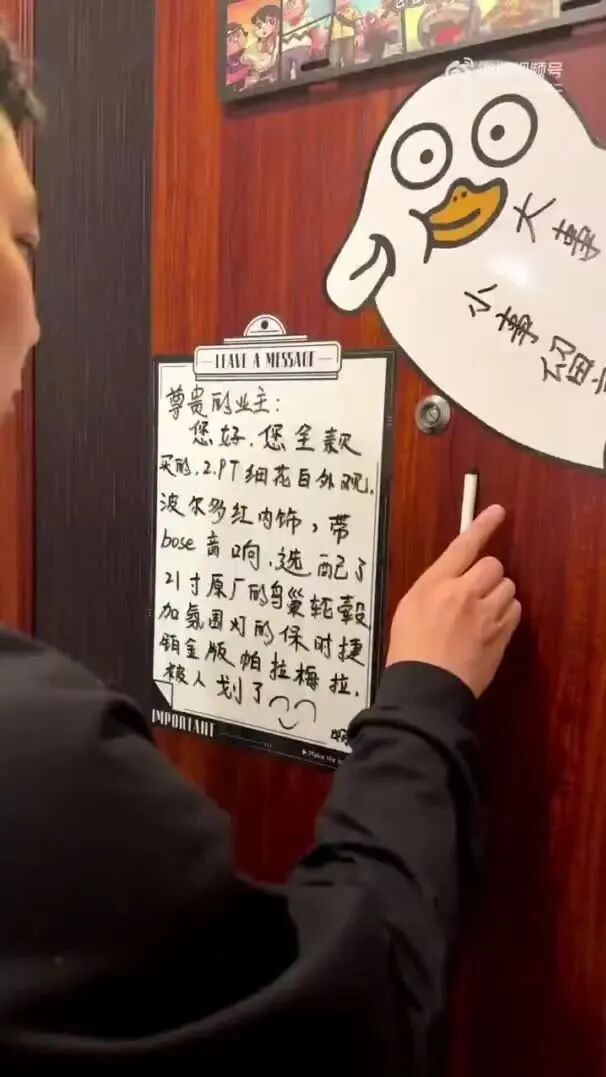 视频号
大事
小事留
LEAVE A MESSAGE
尊贵的业主：
您好，您全款
买的，2.9T细花白外观，
波尔多红内饰，带
bose音响，选配了
21寸原厂的鸟巢轮毂
加氛围灯的保时捷
铂金版帕拉梅拉，
被人划了
IMPORTANT